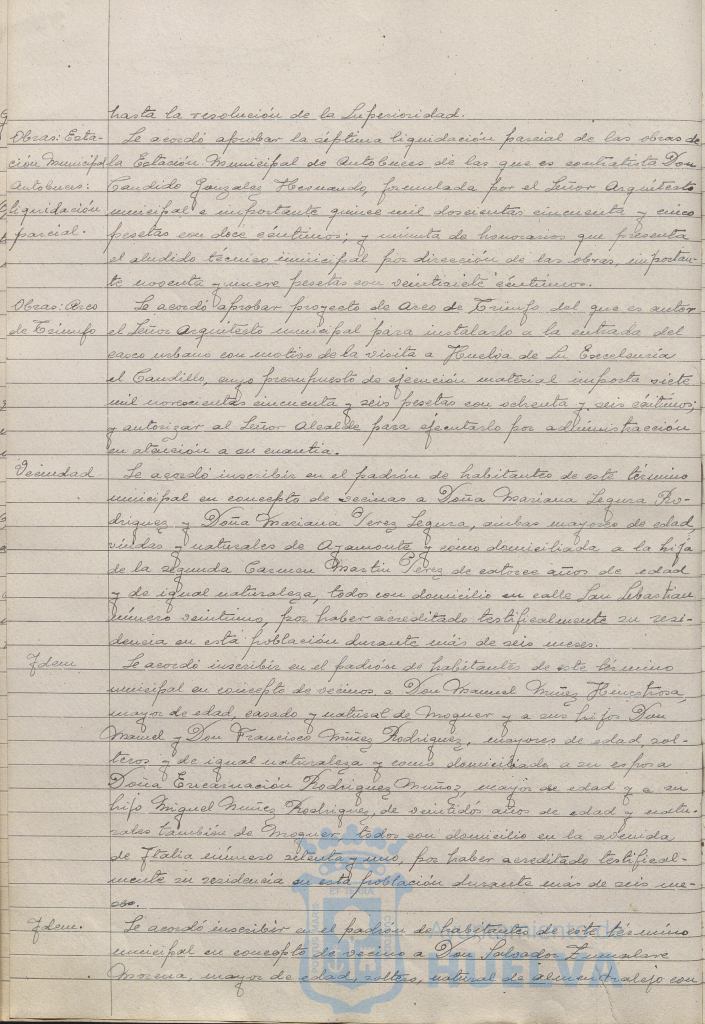 hasta la resolución de la Superioridad.
Obras: Esta-
ción Municipal
Autobuses:
liquidación
parcial.
Se acordó aprobar la séptima liquidación parcial de las obras de
la Estación Municipal de Autobuses de las que es contratista Don
Candido Gonzalez Hernando, formulada por el Señor Arquitecto
municipal e importante quince mil doscientas cincuenta y cinco
pesetas con doce céntimos; y minuta de honorarios que presenta
el aludido técnico municipal por dirección de las obras, importan-
te noventa y nueve pesetas con veintisiete céntimos.
Obras: Arco
de Triunfo
Se acordó aprobar proyecto de Arco de Triunfo del que es autor
el Señor Arquitecto municipal para instalarlo a la entrada del
casco urbano con motivo de la visita a Huelva de Su Excelencia
el Caudillo, cuyo presupuesto de ejecución material importa siete
mil novescientas cincuenta y seis pesetas con ochenta y seis céntimos;
y autorizar al Señor Alcalde para ejecutarlo por administracción
en atención a su cuantia.
Vecindad
Se acordó inscribir en el padrón de habitantes de este término
municipal en concepto de vecinas a Doña Mariana Segura Ro-
driguez y Doña Mariana Perez Segura, ambas mayores de edad,
viudas y naturales de Ayamonte y como domiciliada a la hija
de la segunda Carmen Martin Perez de catorce años de edad
y de igual naturaleza, todos con domicilio en calle San Sebastian
número veintiuno, por haber acreditado testificalmente su resi-
dencia en esta población durante más de seis meses.
Idem
Se acordó inscribir en el padrón de habitantes de este término
municipal en concepto de vecinos a Don Manuel Muñez Hinestrosa,
mayor de edad, casado y natural de Moguer y a sus hijos Don
Manuel y Don Francisco Muñez Rodriguez, mayores de edad, sol-
teros y de igual naturaleza y como domiciliada a su esposa
Doña Encarnación Rodriguez Muñoz, mayor de edad y a su
hijo Miguel Muñez Rodriguez, de veintidós años de edad y natu-
rales también de Moguer, todos con domicilio en la avenida
de Italia número setenta y uno, por haber acreditado testifical-
mente su residencia en esta población durante más de seis me-
ses.
Idem.
Se acordó inscribir en el padrón de habitantes de este término
municipal en concepto de vecino a Don Salvador
Morena, mayor de edad, soltero, natural de Almendralejo con
Ayuntamiento de
HUELVA